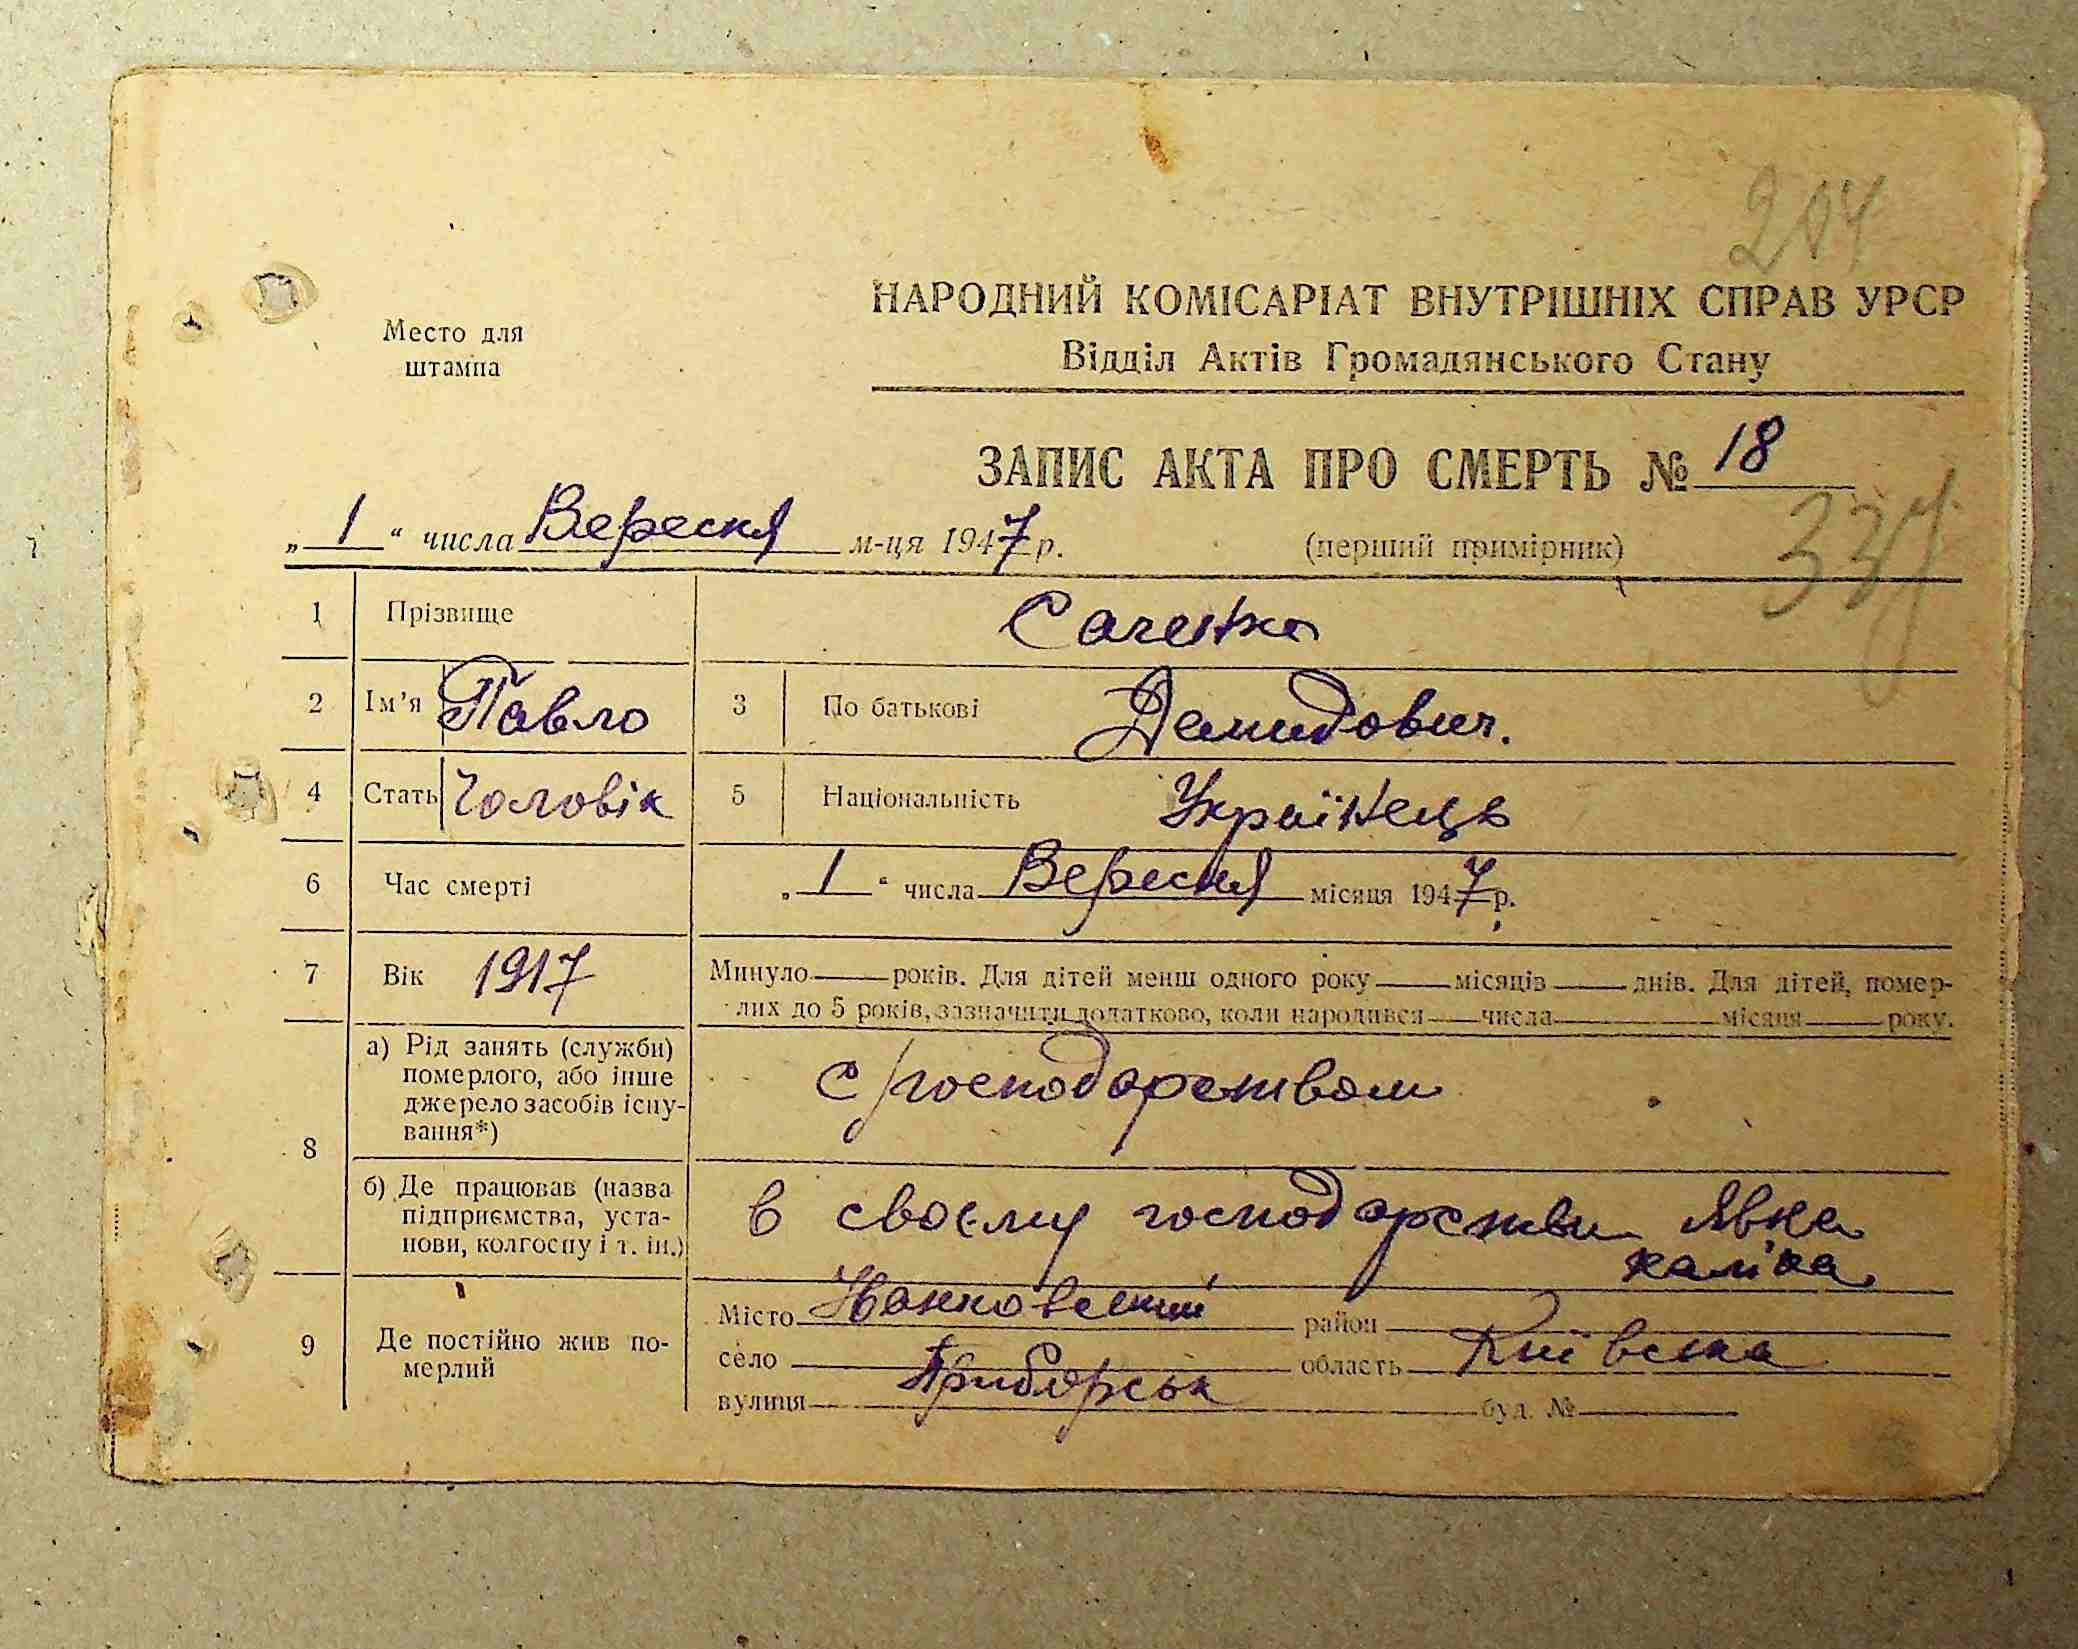 204
НАРОДНИЙ КОМІСАРІАТ ВНУТРІШНІХ СПРАВ УРСР
Место для штампа
Відділ Актів Громадянського Стану
ЗАПИС АКТА ПРО СМЕРТЬ № 18
„ 1 “ числа Вересня м-ця 1947 р. (перший примірник)
337
1 Прізвище Саченко
2 Ім'я Павло 3 По батькові Демидович.
4 Стать Чоловік 5 Національність Українець
6 Час смерті „ 1 “ числа Вересня місяця 1947 р.
7 Вік 1917 Минуло років. Для дітей менш одного року місяців днів. Для дітей, помер-
лих до 5 років, зазначити додатково, коли народився числа місяця року.
8 а) Рід занять (служби)
померлого, або інше
джерело засобів існу-
вання*)
с/господарством
б) Де працював (назва
підприємства, уста-
нови, колгоспу і т. ін.)
в своєму господарстви
каліка
9 Де постійно жив по-
мерлий
Місто район
село Приборськ область Київська
вулиця буд. №